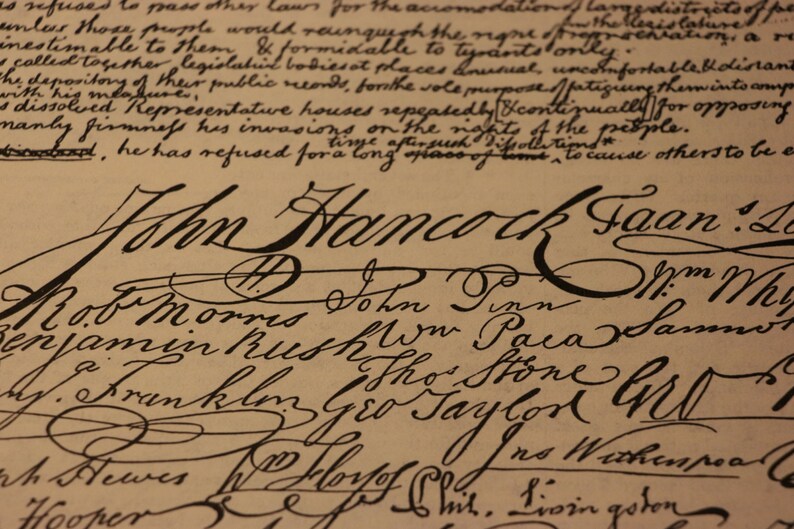 refused to pass other laws for the accomodation of large districts of
unless those people would relinquish the right of representation in the legislature, a
inestimable to them & formidable to tyrants only.
called together legislative bodies at places unusual, uncomfortable & distant
the depository of their public records, for the sole purpose of fatiguing them into
with his measures.
dissolved Representative houses repeatedly [& continually] for opposing
manly firmness his invasions on the rights of the people.
, he has refused for a long time after such dissolutions* space of time, to cause others to be
John Hancock Faan's
Robt Morris John Penn Wm
Benjamin Rush Wm Paca
Franklin Thos Stone
Geo Taylor GEO
Hewes Wm Floyd Jno Witherspoon
Hooper Phil. Livingston